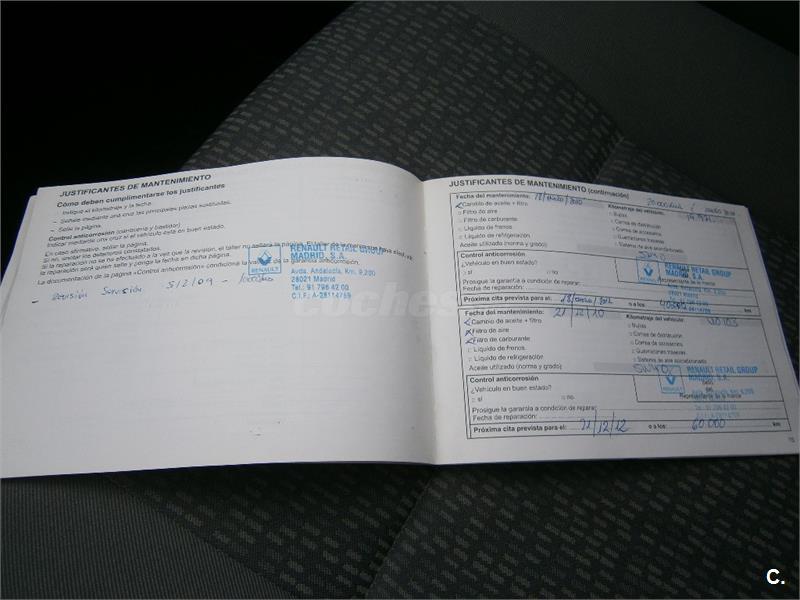 JUSTIFICANTES DE MANTENIMIENTO
Cómo deben cumplimentarse los justificantes
– Indique el kilometraje y la fecha.
– Señale mediante una cruz las principales piezas sustituidas.
– Selle la página.
Control anticorrosión (carrocería y bastidor)
Indicar mediante una cruz si el vehículo está en buen estado.
En caso afirmativo, sellar la página.
Si no, anotar los deterioros constatados.
Si la reparación no se ha efectuado a la vez que la revisión, el taller no sellará la página. El
la reparación será quien selle y ponga la fecha en dicha página.
La documentación de la página «Control anticorrosión» condiciona la validez de la garantía anticorrosión.
RENAULT RETAIL GROUP
MADRID, S.A.
RENAULT
Avda. Andalucía, Km. 9,200
28021 Madrid
Tel.: 91 796 42 00
C.I.F.: A-28114759
– Revisión 5/2/09 –
coches
JUSTIFICANTES DE MANTENIMIENTO (continuación)
Fecha del mantenimiento: 18/enero/2010
Cambio de aceite + filtro
Filtro de aire
Filtro de carburante
Líquido de frenos
Líquido de refrigeración
Aceite utilizado (norma y grado)
Kilometraje del vehículo:
Bujías
Correa de distribución
Correa de accesorios
Guarniciones traseras
Sistema de aire acondicionado
Control anticorrosión
¿Vehículo en buen estado?
sí no
Prosigue la garantía a condición de reparar:
Fecha de reparación:
RENAULT RETAIL GROUP
MADRID, S.A.
Próxima cita prevista para el: 18/enero/2012 o a los: km
Fecha del mantenimiento: 21/12/10
Cambio de aceite + filtro
Filtro de aire
Filtro de carburante
Líquido de frenos
Líquido de refrigeración
Aceite utilizado (norma y grado)
Kilometraje del vehículo: 40103
Bujías
Correa de distribución
Correa de accesorios
Guarniciones traseras
Sistema de aire acondicionado
5W40
Control anticorrosión
¿Vehículo en buen estado?
sí no
Prosigue la garantía a condición de reparar:
Fecha de reparación:
RENAULT RETAIL GROUP
MADRID, S.A.
Sello
del
Representante de la marca
Próxima cita prevista para el: 21/12/12 o a los: 60000 km
C.